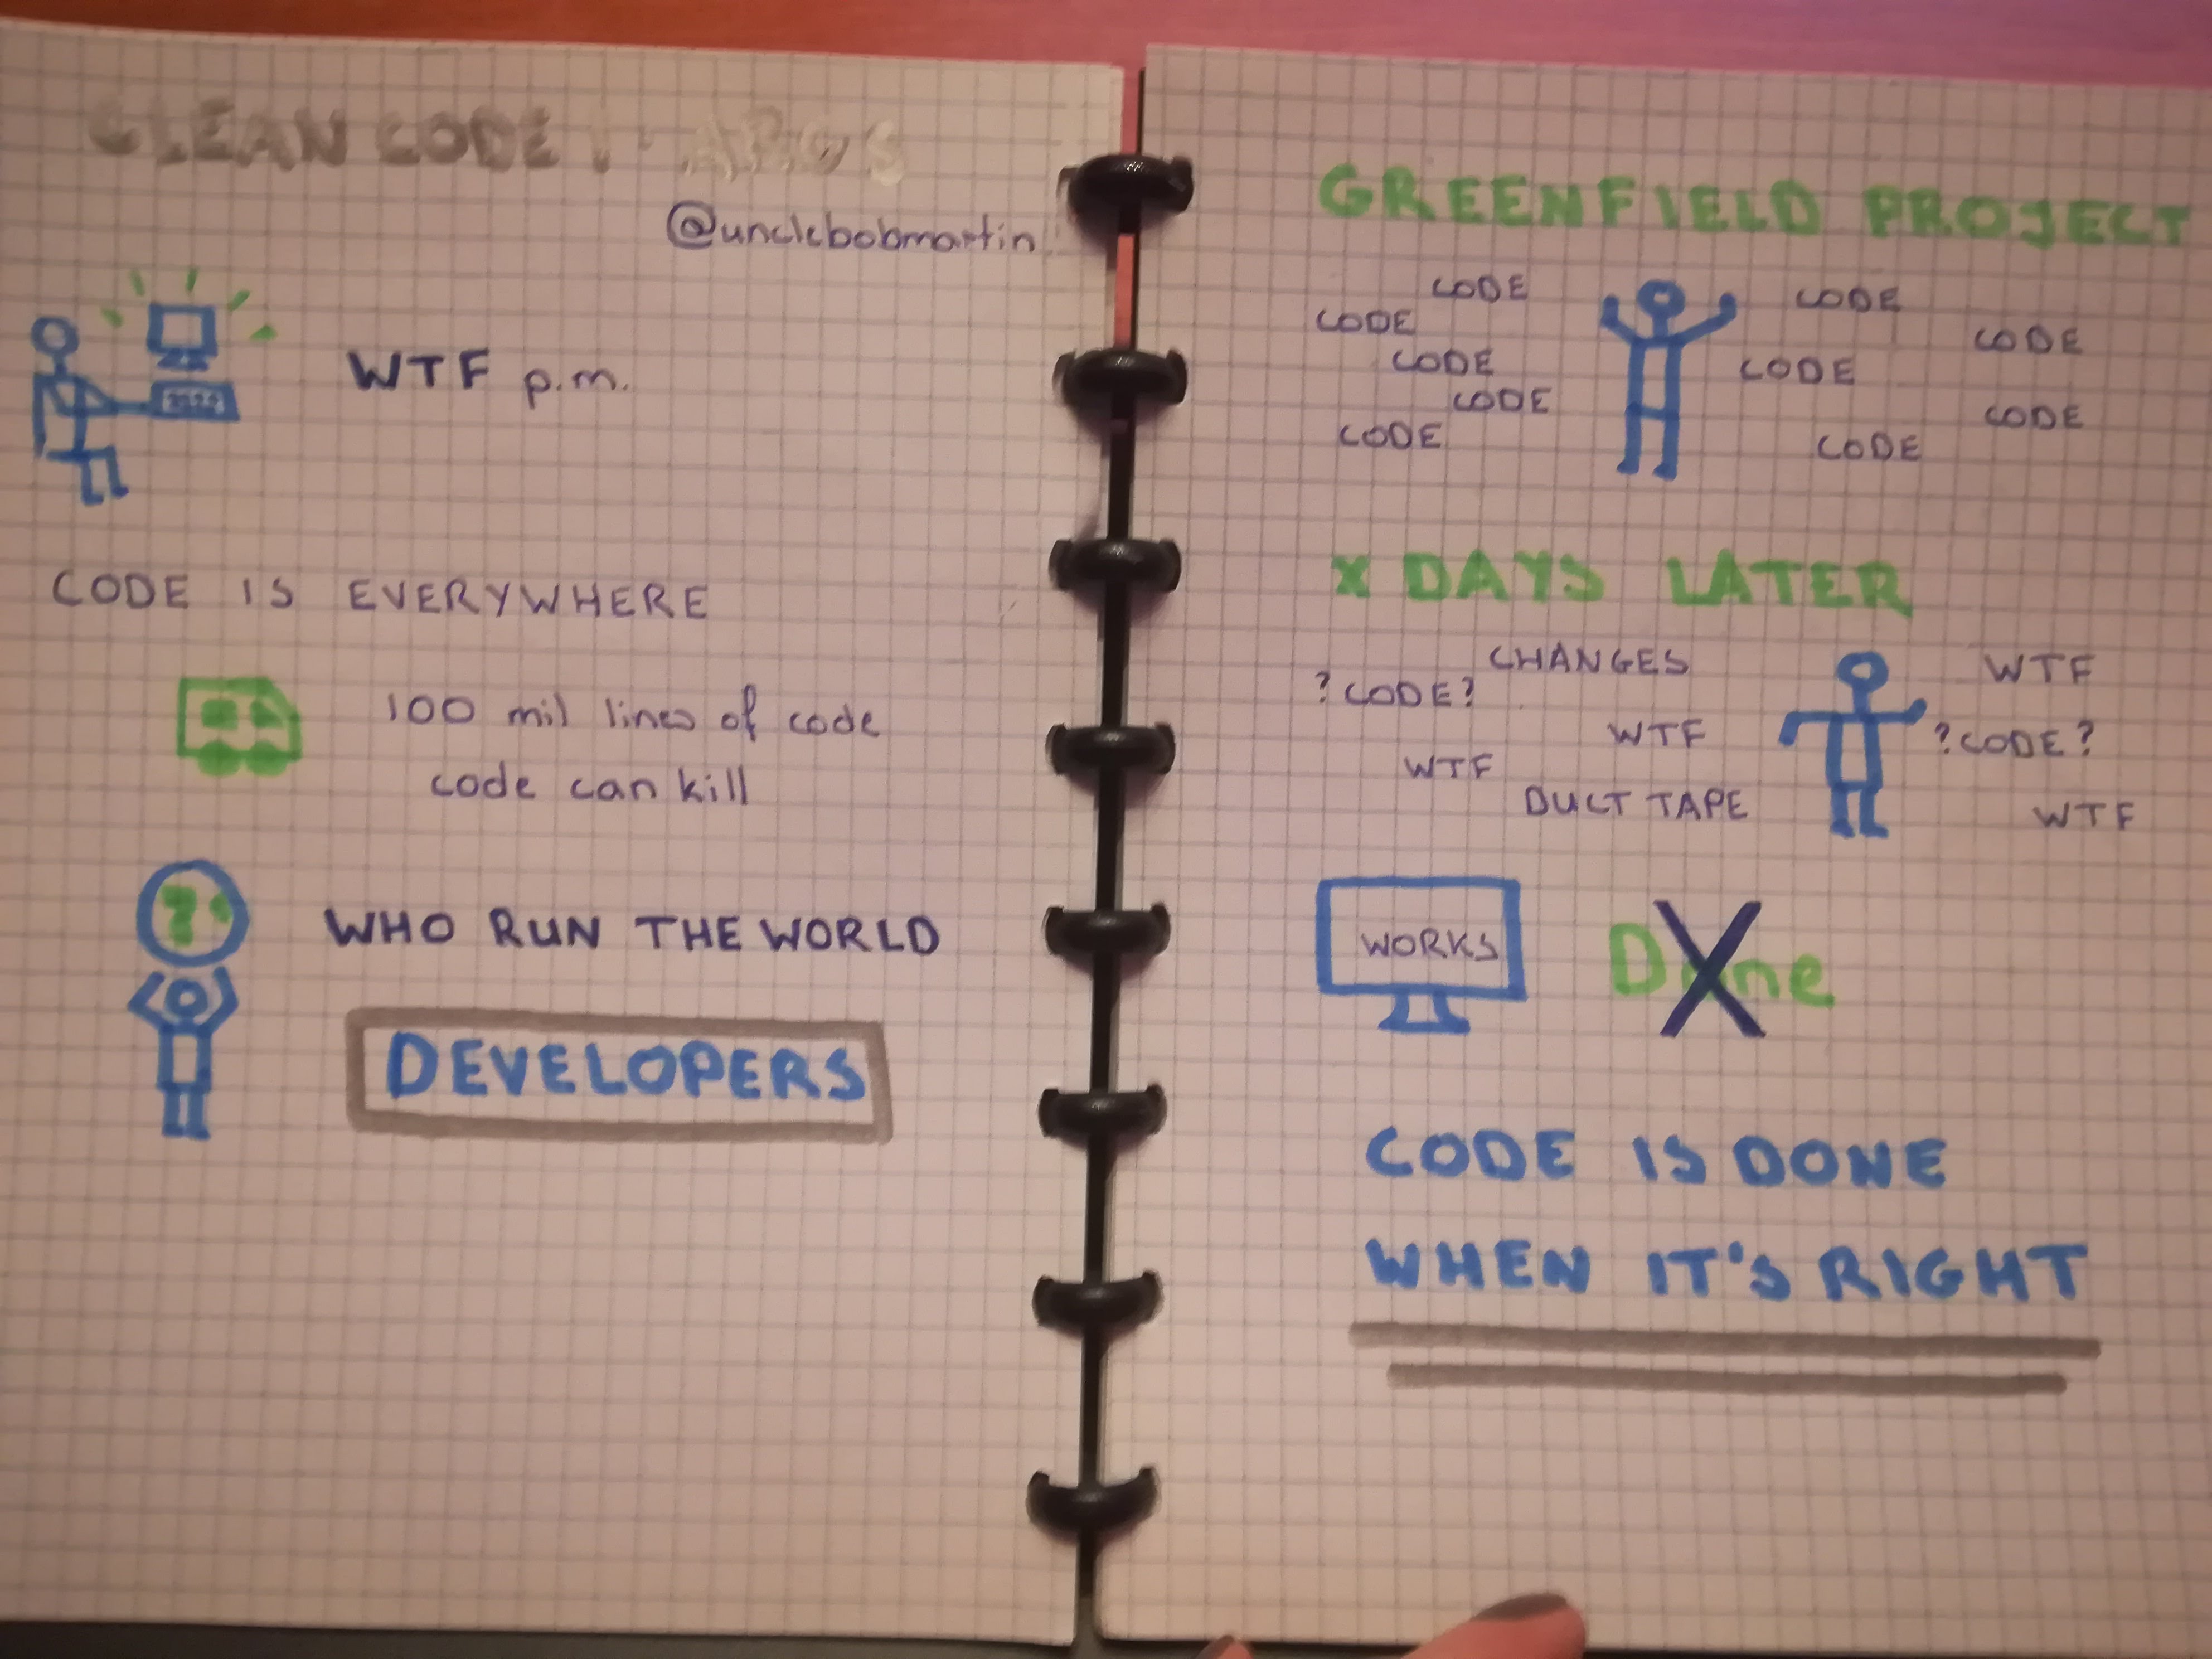 CLEAN CODE 1 - ARGS
@unclebobmartin
WTF p.m.
CODE IS EVERYWHERE
100 mil lines of code
code can kill
?
WHO RUN THE WORLD
DEVELOPERS
GREENFIELD PROJECT
CODE CODE
CODE CODE
CODE CODE
CODE CODE
CODE CODE
X DAYS LATER
CHANGES WTF
?CODE?
WTF ?CODE?
WTF
DUCT TAPE WTF
WORKS Done
CODE IS DONE
WHEN IT'S RIGHT